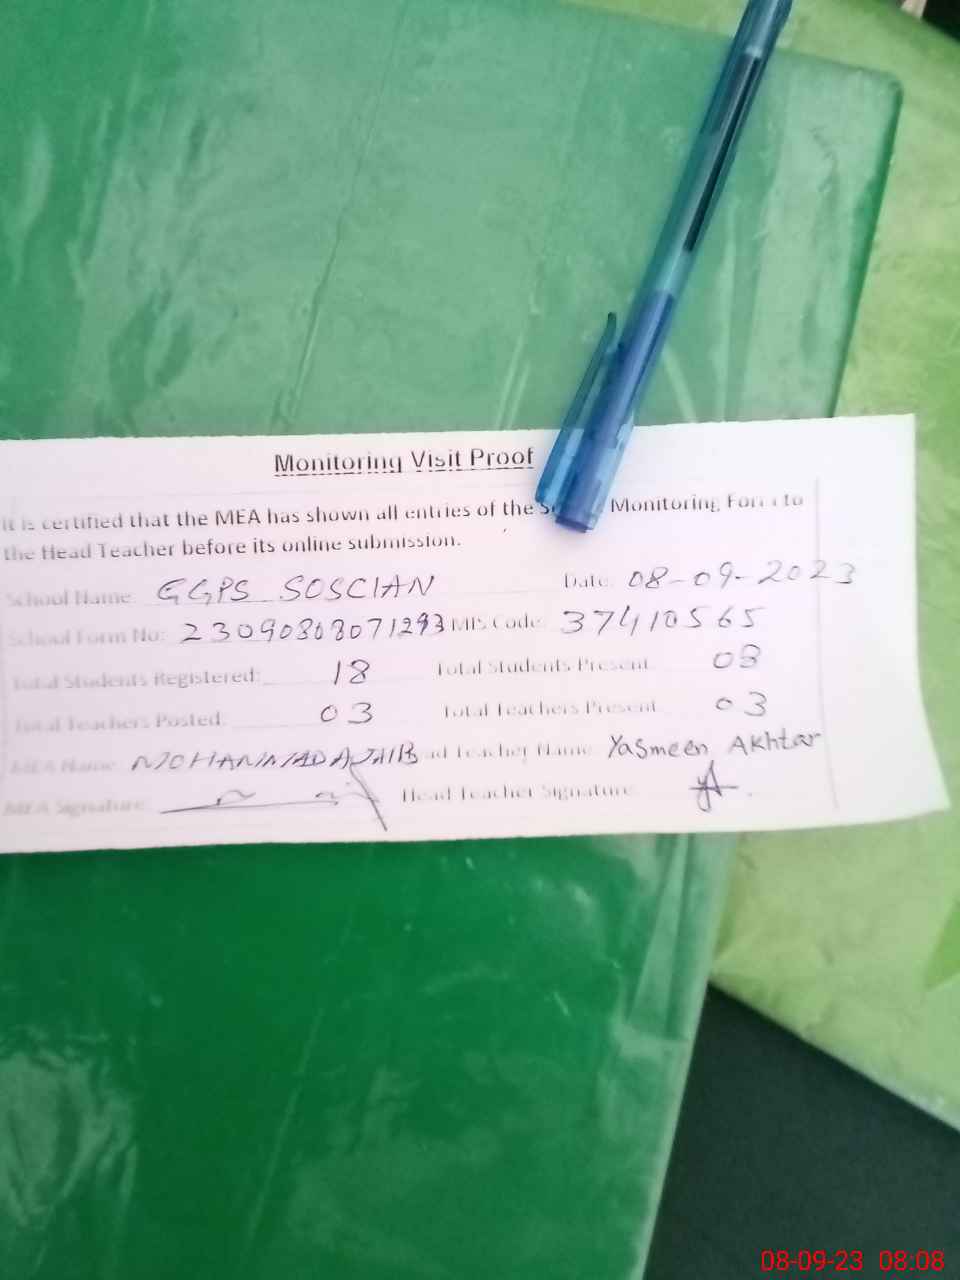 Monitoring Visit Proof
It is certified that the MEA has shown all entries of the Monitoring Form to
the Head Teacher before its online submission.
School Name: GGPS SOSCIAN Date: 08-09-2023
School Form No: 23090808071293 MIS Code: 37410565
Total Students Registered: 18 Total Students Present 08
Total Teachers Posted: 03 Total Teachers Present 03
MEA Name: MOHAMMAD AJAIB ad Teacher Name Yasmeen Akhtar
MEA Signature: Head Teacher Signature YA.
08-09-23 08:08